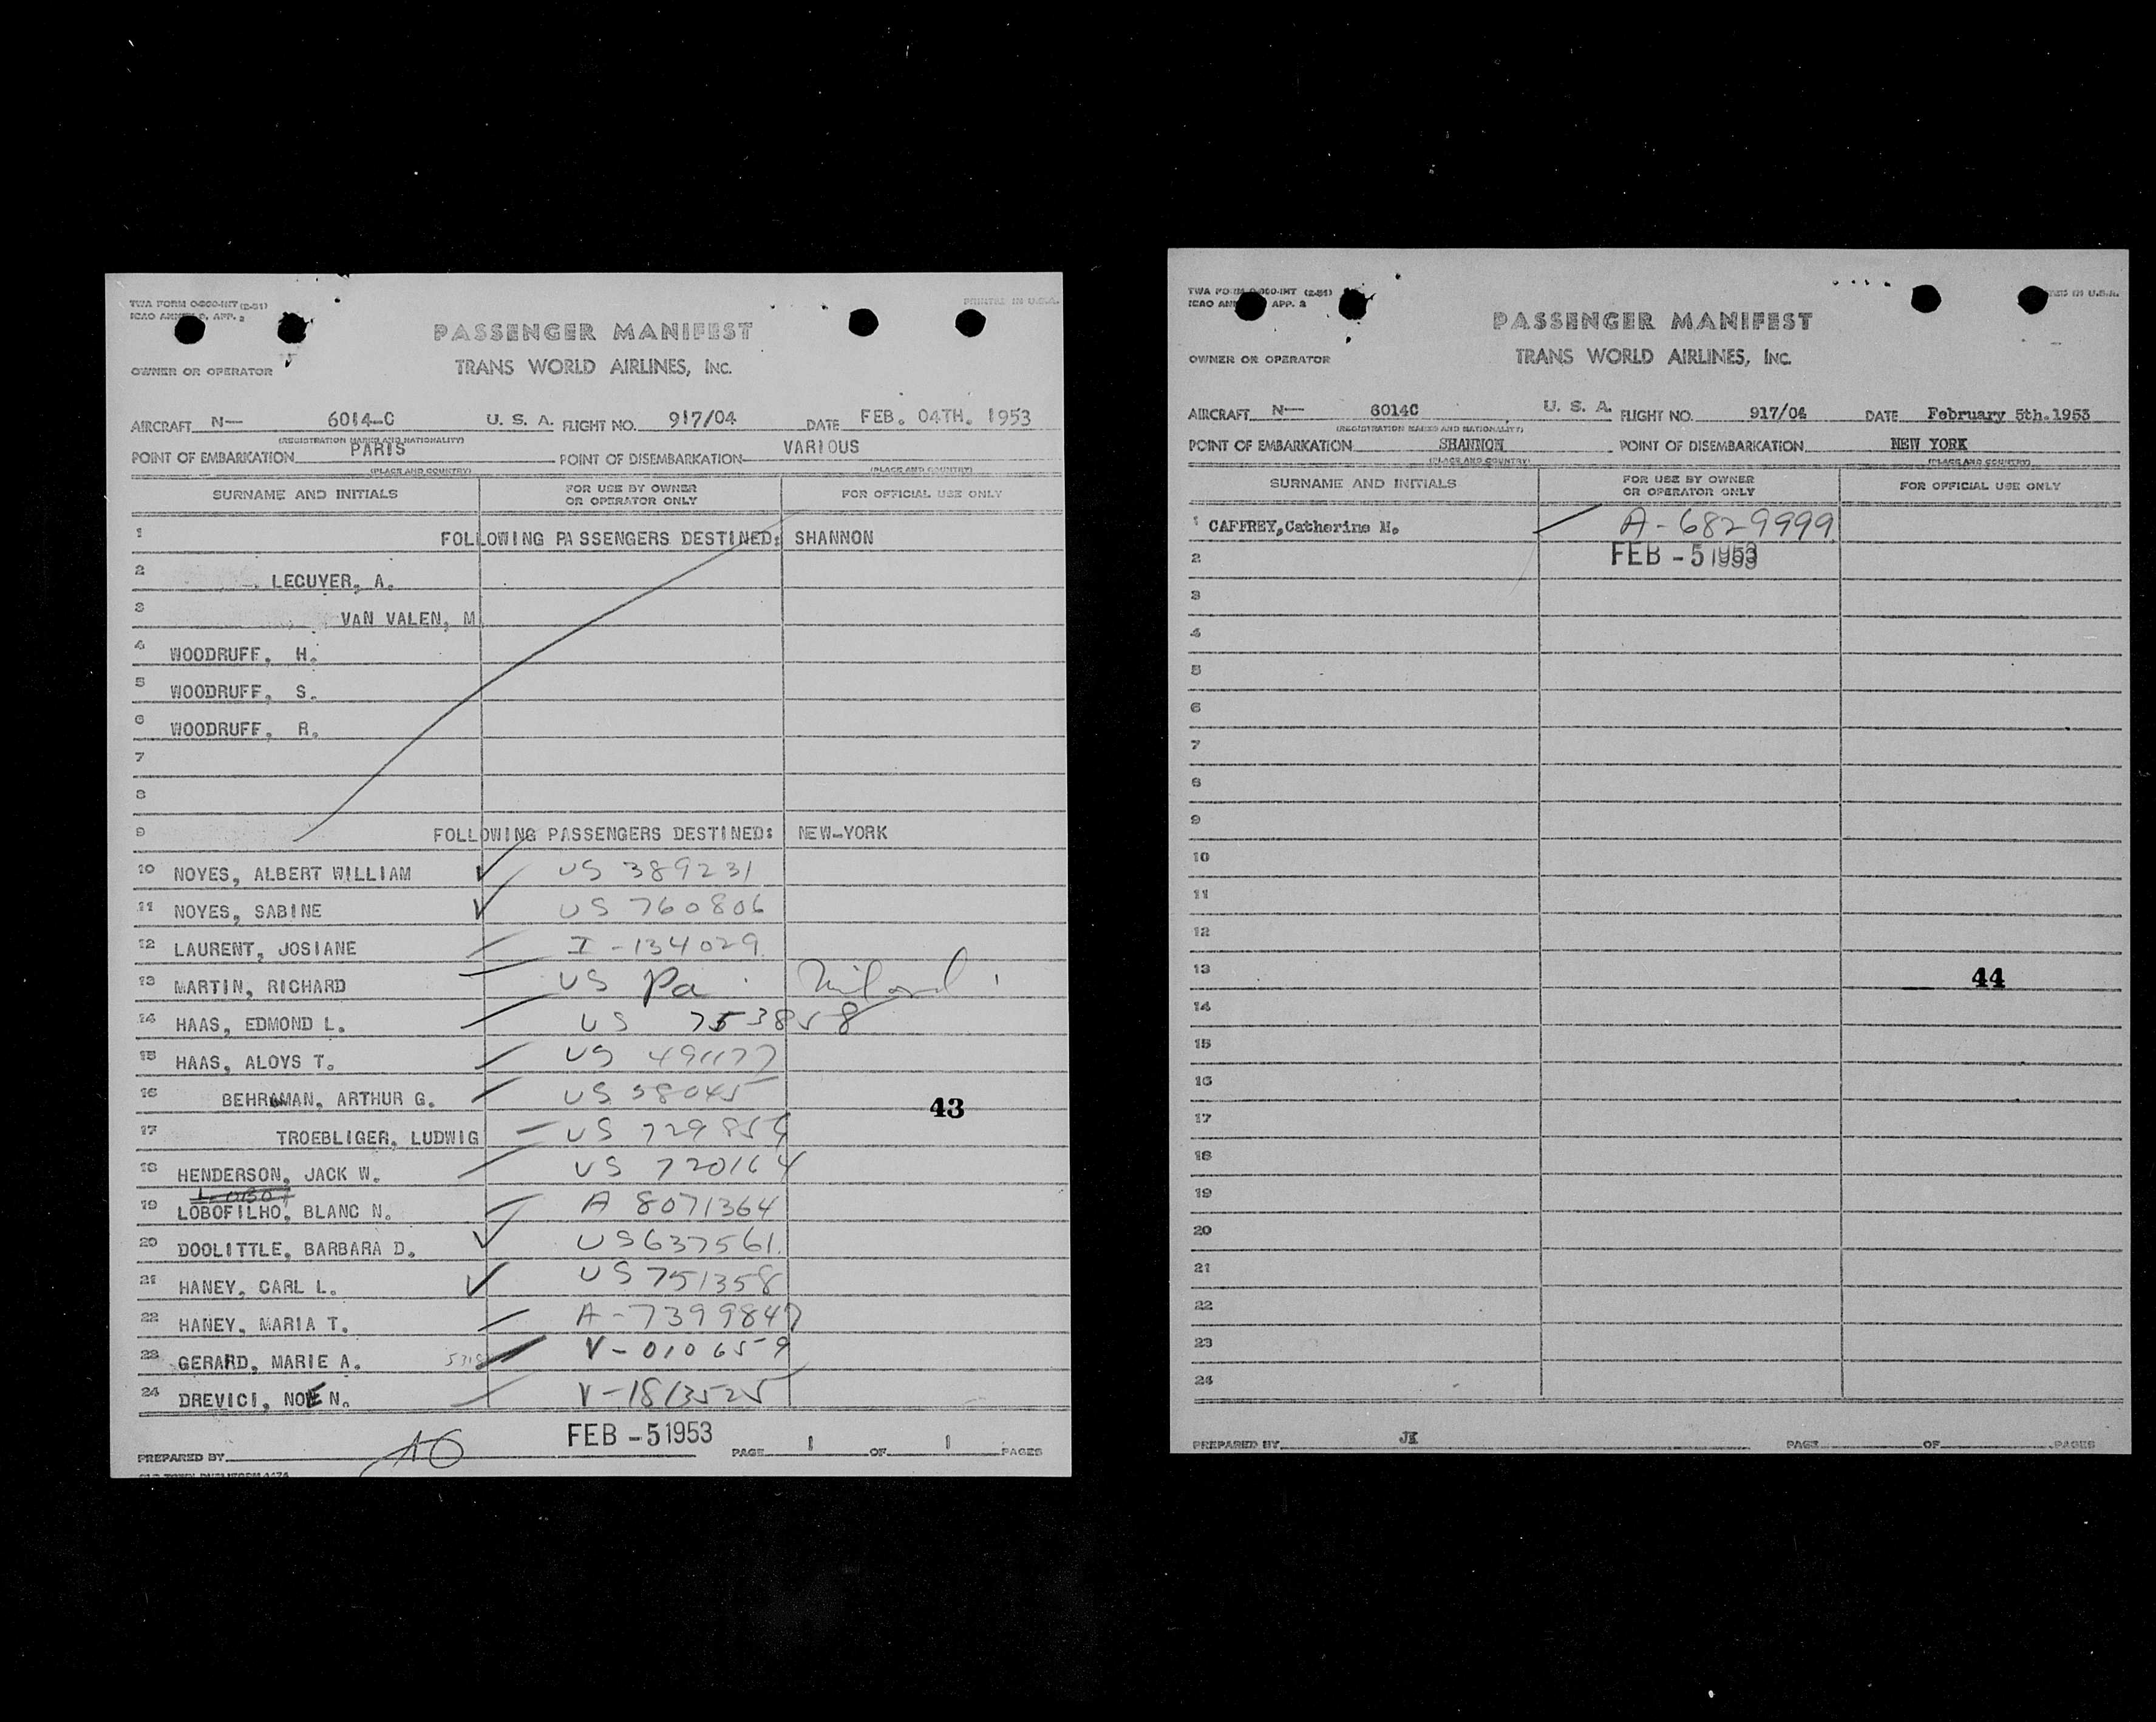 TWA FORM O-800-INT (2-51)
PRINTED IN U.S.A.
ICAO APP. 2
PASSENGER MANIFEST
OWNER OR OPERATOR TRANS WORLD AIRLINES, INC.
AIRCRAFT N— 6014-C U. S. A. FLIGHT NO. 917/04 DATE FEB. 04TH. 1953
(REGISTRATION MARKS AND NATIONALITY)
POINT OF EMBARKATION PARIS POINT OF DISEMBARKATION VARIOUS
(PLACE AND COUNTRY) (PLACE AND COUNTRY)
SURNAME AND INITIALS FOR USE BY OWNER OR OPERATOR ONLY FOR OFFICIAL USE ONLY
1 FOLLOWING PASSENGERS DESTINED: SHANNON
2 LECUYER, A.
3 VAN VALEN, M
4 WOODRUFF, H.
5 WOODRUFF, S.
6 WOODRUFF, R.
7
8
9 FOLLOWING PASSENGERS DESTINED: NEW-YORK
10 NOYES, ALBERT WILLIAM ✓ US 389231
11 NOYES, SABINE ✓ US 760806
12 LAURENT, JOSIANE I-134029
13 MARTIN, RICHARD US Pa
14 HAAS, EDMOND L. US 753858
15 HAAS, ALOYS T. US 491177
16 BEHRMAN, ARTHUR G. US 38045
43
17 TROEBLIGER, LUDWIG US 729854
18 HENDERSON, JACK W. US 720164
19 LOBOFILHO, BLANC N. A 8071364
20 DOOLITTLE, BARBARA D. ✓ US 637561
21 HANEY, CARL L. ✓ US 751358
22 HANEY, MARIA T. A-7399847
23 GERARD, MARIE A. V-010659
24 DREVICI, NOE N. V-1813525
FEB -5 1953
PREPARED BY AG PAGE 1 OF 1 PAGES
TWA FORM O-800-INT (2-51)
IN U.S.A.
ICAO APP. 2
PASSENGER MANIFEST
OWNER OR OPERATOR TRANS WORLD AIRLINES, INC.
AIRCRAFT N— 6014C U. S. A. FLIGHT NO. 917/04 DATE February 5th.1953
(REGISTRATION MARKS AND NATIONALITY)
POINT OF EMBARKATION SHANNON POINT OF DISEMBARKATION NEW YORK
(PLACE AND COUNTRY) (PLACE AND COUNTRY)
SURNAME AND INITIALS FOR USE BY OWNER OR OPERATOR ONLY FOR OFFICIAL USE ONLY
1 CAFFREY,Catherine M. A-6829999
2 FEB -5 1953
3
4
5
6
7
8
9
10
11
12
13 44
14
15
16
17
18
19
20
21
22
23
24
PREPARED BY JK PAGE OF PAGES